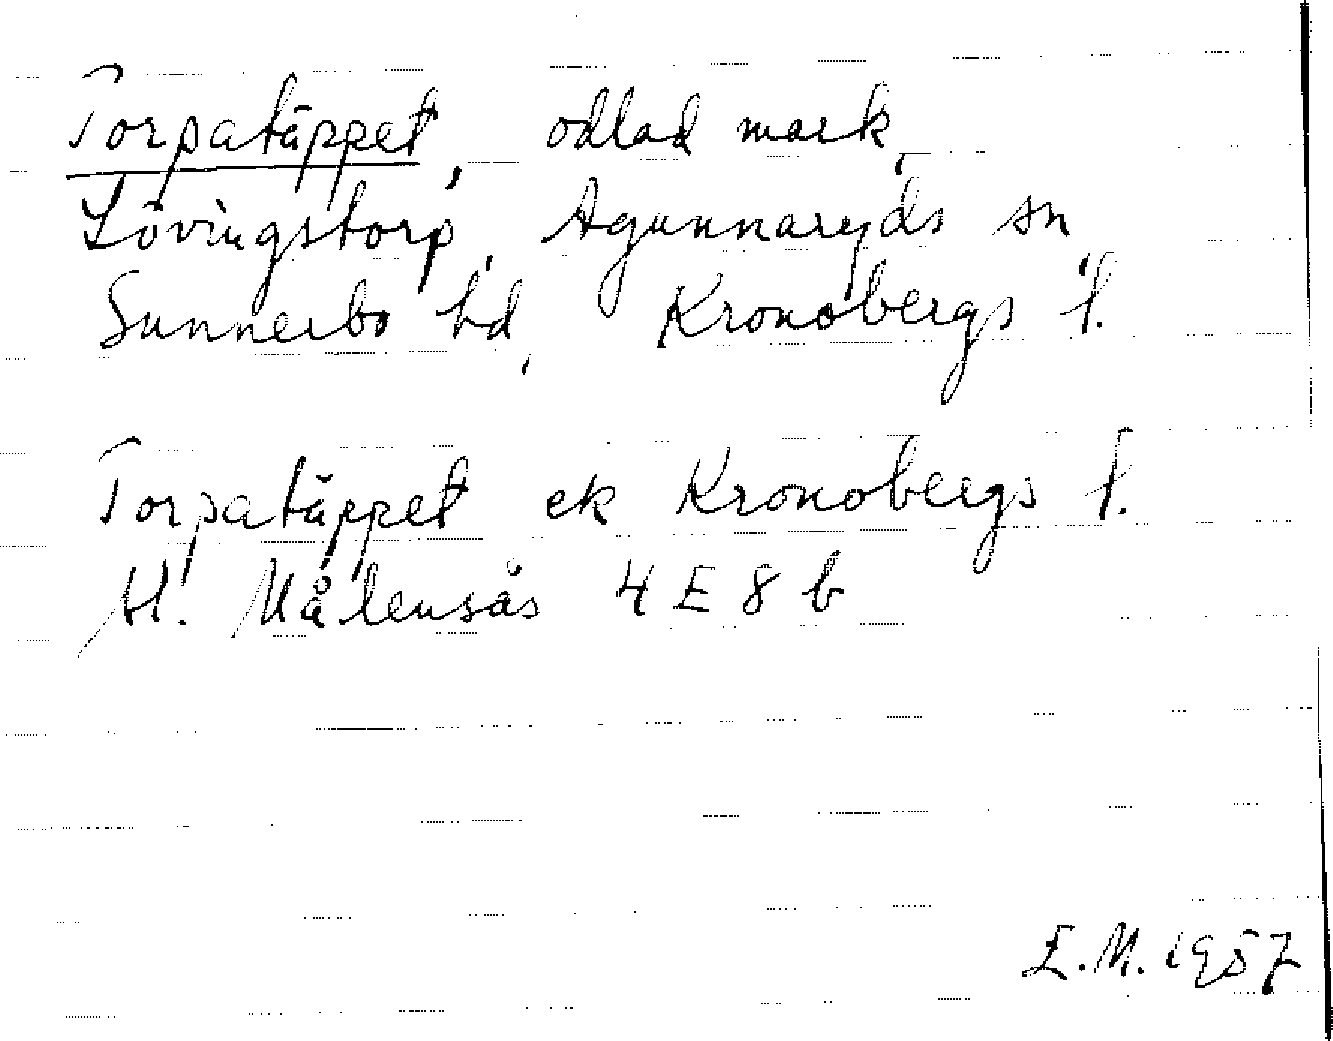 Torpatäppet, odlad mark,
Lövingstorp, Agunnaryds sn
Sunnerbo hd, Kronobergs l.
Torpatäppet ek Kronobergs l.
M. Målensås 4 E 8 b
E.M. 1957